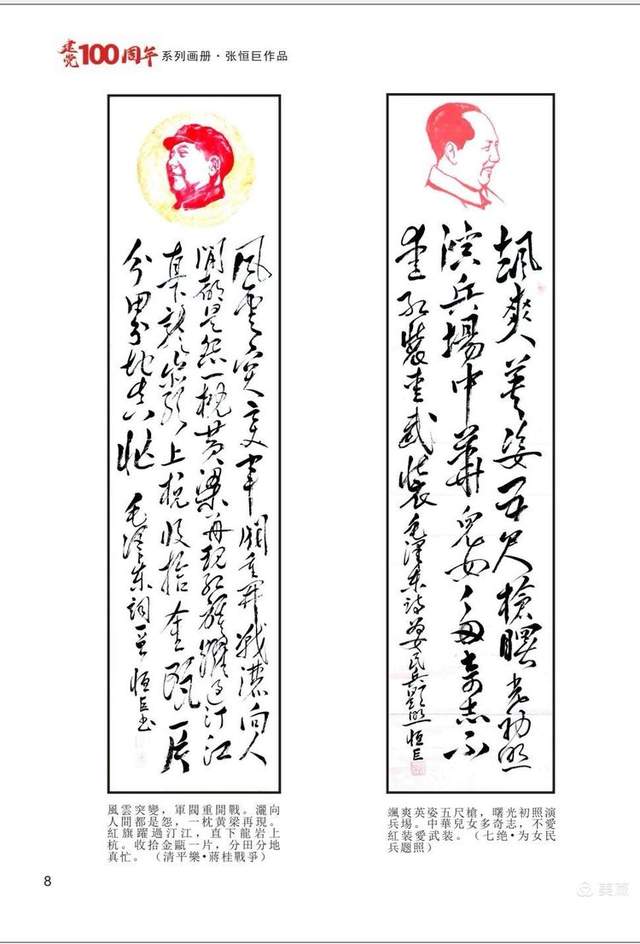 建党100周年 系列画册·张恒巨作品
風雲突變軍閥重開戰灑向人
間都是怨一枕黄粱再現紅旗躍過汀江
直下龍岩上杭收拾金甌一片
分田分地真忙 毛澤東詞一首 恒巨书
颯爽英姿五尺槍曙光初照
演兵場中華兒女多奇志不
愛红装愛武装 毛澤東詩為女民兵題照 恒巨
風雲突變，軍閥重開戰。灑向
人間都是怨，一枕黄梁再現。
紅旗躍過汀江，直下龍岩上
杭。收拾金甌一片，分田分地
真忙。（清平樂·蔣桂戰爭）
颯爽英姿五尺槍，曙光初照演
兵場。中華兒女多奇志，不愛
紅装愛武装。（七绝·为女民
兵題照）
8
美篇